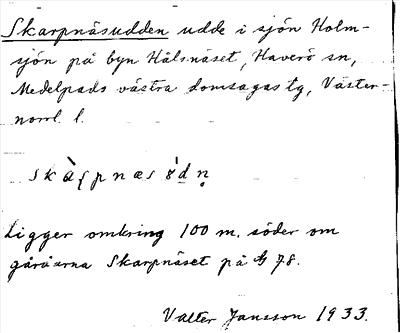 Skarpnäsudden udde i sjön Holm-
sjön på byn Hålsnäset, Haverö sn,
Medelpads västra domsagas tg, Väster-
norrl. l.
Ligger omkring 100 m. söder om
gårdarna Skarpnäset på 78.
Valter Jansson 1933.